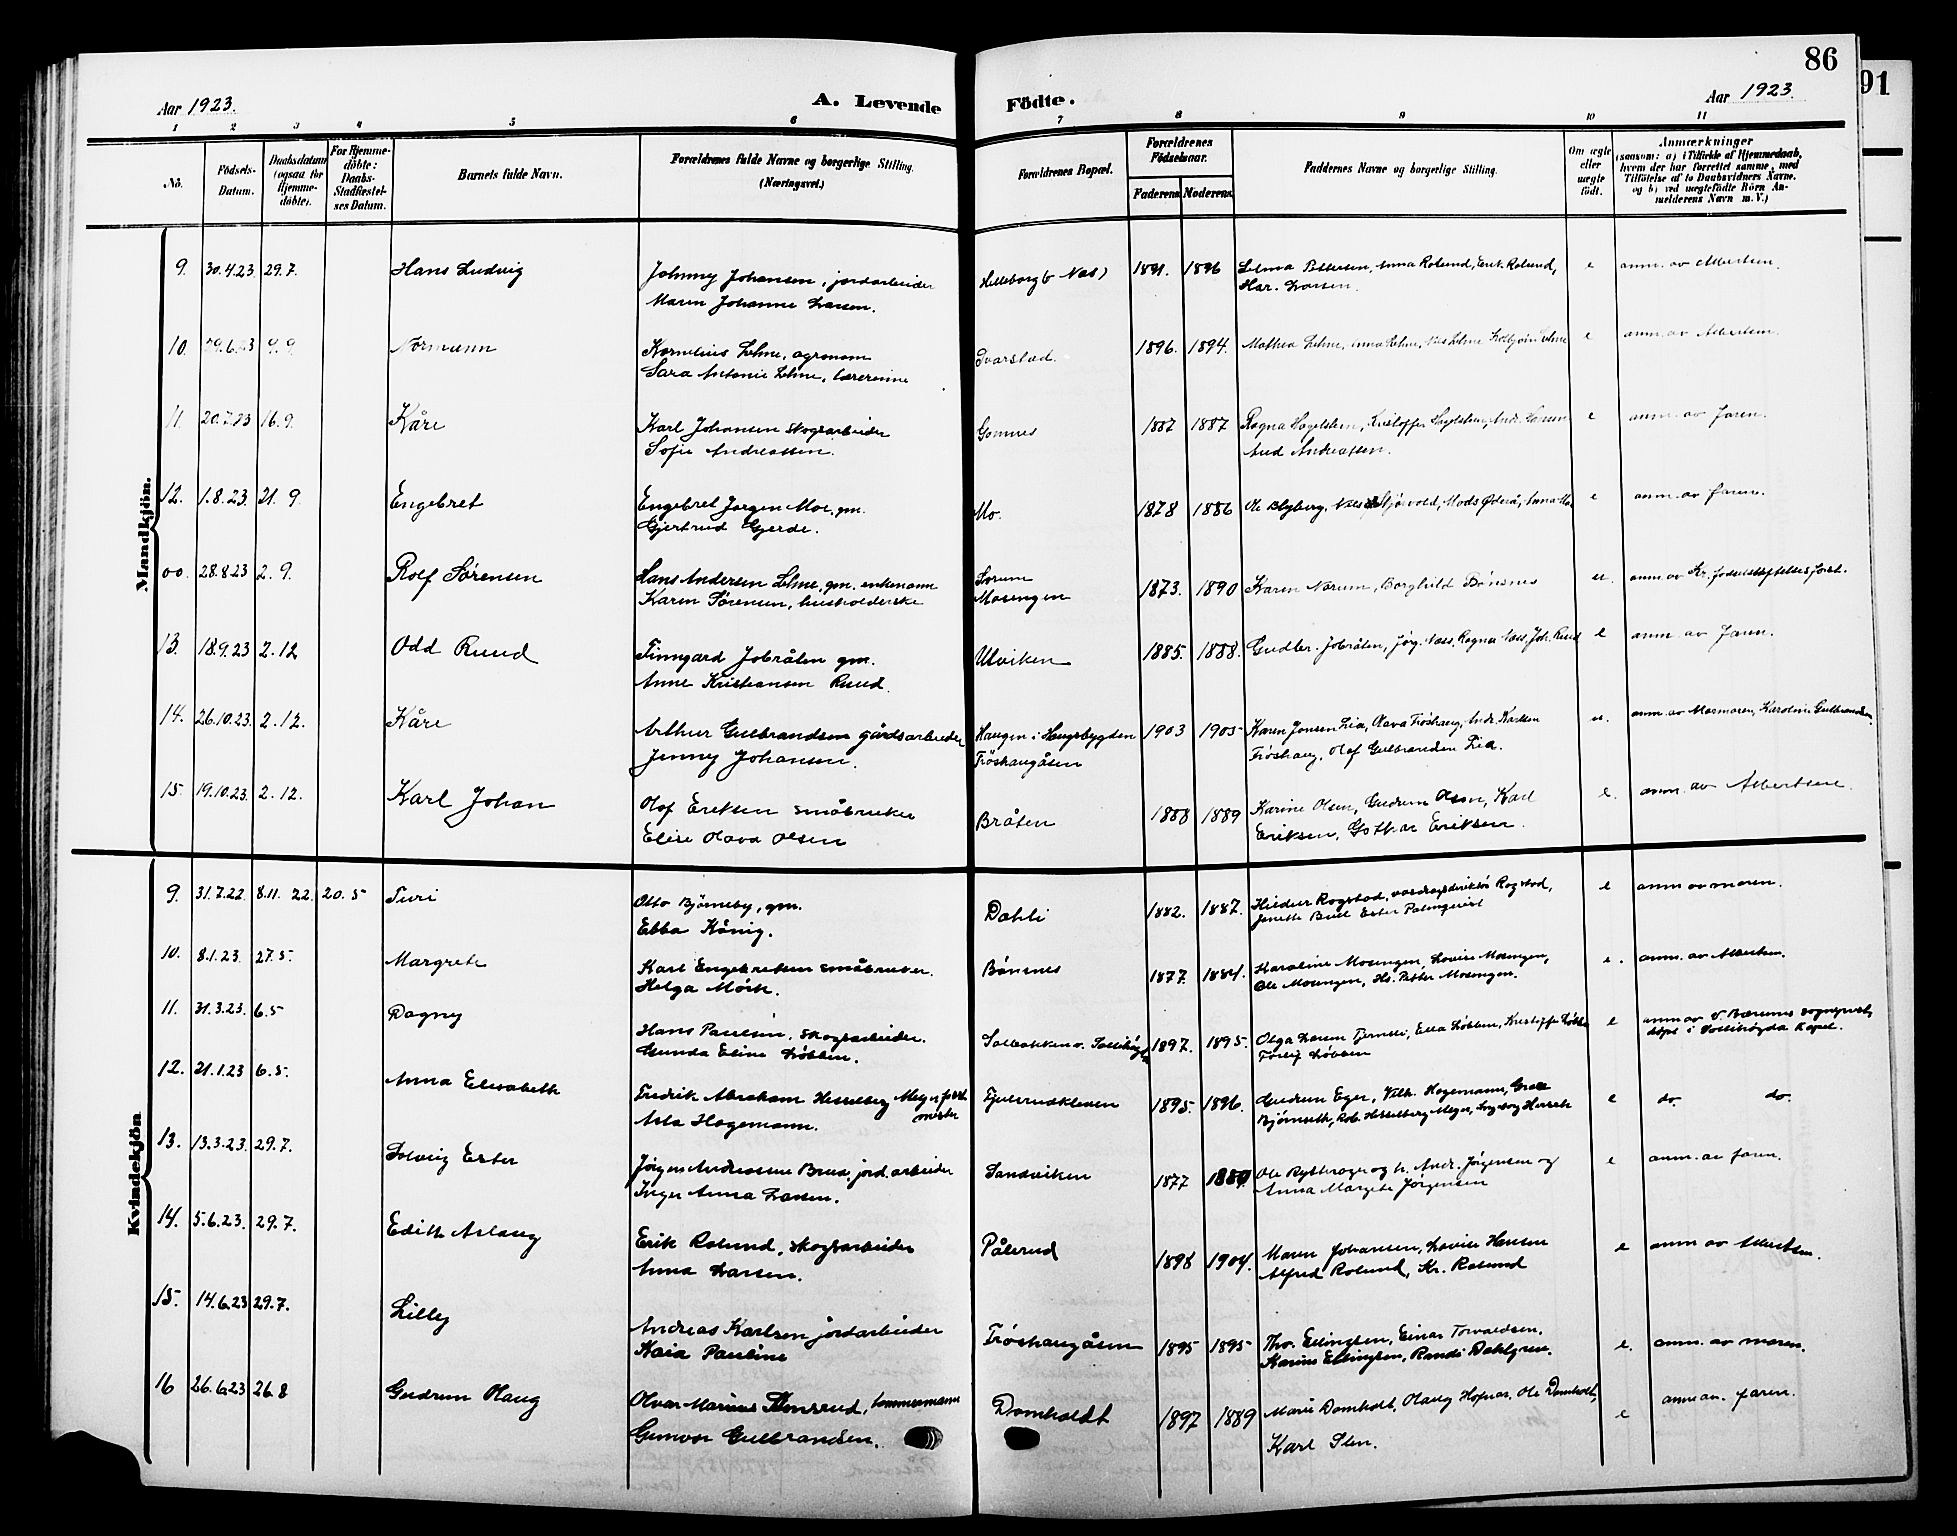 86
91
Aar 1923.
A. Levende Födte.
Aar 1923.
1 2 3 4 5 6 7 8 9 10 11
No.
Födsels-
Datum.
Daabsdatum
(ogsaa for
Hjemme-
döbte).
For Hjemme-
döbte:
Daabs-
Stadfæstel-
ses Datum.
Barnets fulde Navn.
Forældrenes fulde Navne og borgerlige Stilling.
(Næringsvei.)
Forældrenes Bopæl.
Forældrenes
Födselsaar.
Faderens. Moderens.
Faddernes Navne og borgerlige Stilling.
Om ægte
eller
uægte
födt.
Anmærkninger
(saasom: a) i Tilfælde af Hjemmedaab,
hvem der har forrettet samme, med
Tilföielse af to Daabsvidners Navne.
og b) ved uægtefödte Börn An-
melderens Navn m. V.)
Mandkjön.
9. 30.4.23 29.7. Hans Ludvig Johnny Johansen, jordarbeider Helleborg (v Næs) 1891. 1896 Pettersen, Anna Rolund, Erik Rolund, e anm. av Albertsen.
Maren Johanne Larsen. Har. Larsen.
10. 29.6.23 9.9. Normann Kornelius Lehne, agronom Svarstad. 1896. 1894. Mathea Lehne, Anna Lehne, Lehne e anm. av Albertsen.
Sara Antonie Lehne, lærerinne
11. 20.7.23 16.9. Kåre Karl Johansen skogsarbeider Gomnes 1887 1887 Ragna Hagelsteen, Kristoffer Andr. Larsen e anm. av faren.
Sofie Andreassen. Aud Andreassen.
12. 1.8.23 21.9. Engebret Engebret Jørgen Moe, gm. Mo. 1878 1886 Ole Blyberg, Anna Moe e anm. av faren.
Gjertrud Gjerde.
00. 28.8.23 2.9. Rolf Sørensen Hans Andersen Lehne, gm. enkemann Sørum 1873. 1890 Karen Nærum, Borghild Bønsnes u. anm. av Kr. fødselsstiftelses
Karen Sørensen, husholderske Mosengen
13. 18.9.23 2.12 Odd Ruud Finngard Jobråten gm. Ulviken 1885. 1888. Gudbr. Jobråten, Jørg. Næss, Ragna Næss, Joh. Ruud e anm. av faren.
Anne Kristiansen Ruud.
14. 26.10.23. 2.12. Kåre Arthur Gulbrandsen gårdsarbeider Haugen i Haugsbygden 1903 1905 Karen Jonsen Lia, Olava Frøshaug, Andr. Karlsen u. anm. av Mormoren, Karoline Gulbrandsen.
Jenny Johansen. Frøshaugåsen Frøshaug, Olaf Gulbrandsen Lia.
15. 19.10.23. 2.12. Karl Johan Olaf Eriksen småbruker Bråten 1888 1889 Karine Olsen, Gudrun Olsen, Karl e. anm. av Albertsen.
Elise Olava Olsen Eriksen, Gothar Eriksen.
Kvindekjön
9. 31.7.22 8.11.22. 20.5 Turi Otto Bjørneby, gm. Dahli 1882. 1887. Rogstad, vasdragsdirektør Rogstad, e anm av moren.
Ebba König. Jenette Bull Ester Palmquist
10. 8.1.23. 27.5. Margrete Karl Engebretsen småbruker. Bønsnes 1877. 1884. Karoline Mosengen, Lovise Mosengen, e. anm. av Albertsen.
Helga Mörk. Ole Mosengen, Hs. Petter Mosengen.
11. 31.3.23. 6.5 Dagny Hans Paulsen, skogsarbeider. Solbakken v. 1897. 1895. Olga Larsen Ella Løbben, Kristoffer Løbben e anm av V Bærums sogneprest,
Gunda Eline Løbben. Løbben døpt i Sollihøgda Kapel.
12. 21.1.23 6.5. Anna Elisabeth Fredrik Abraham Hesselberg Meyer Fjulsrudkleven 1895. 1896. Gudrun Eger, Vilh. Hagemann, Grace e do. do.
Asta Hagemann. Bjørnseth, Rob. Hesselberg Meyer,
13. 13.3.23. 29.7. Solveig Ester Jörgen Andreassen jord.arbeider Sandviken 1877 1880. Ole Rytterager og h. Andr. Jørgensen og e anm. av faren.
Inger Anna Larsen. Anna Margete Jørgensen
14. 5.6.23. 29.7. Edith Aslaug Erik Rolund, skogsarbeider Pålerud 1898 1904. Maren Johansen, Lovise Hansen e anm av Albertsen.
Anna Larsen. Alfred Rolund, Kr. Rolund
15. 14.6.23 29.7. Lilly Andreas Karlsen jordarbeider Frøshaugåsen 1895 1895 Thv. Ellingsen, Einar Torvaldsen. e. anm. av moren.
Kaia Pauline Karine Ellingsen, Randi Dahlgren.
16 26.6.23 26.8 Gudrun Olaug Olvar Marius Stensrud, tømmermann Domholdt 1897 1889 Marie Domholdt, Olaug Hofnar, Ole Domholdt, e anm av. faren.
Gunvor Gulbrandsen. Karl Sten.